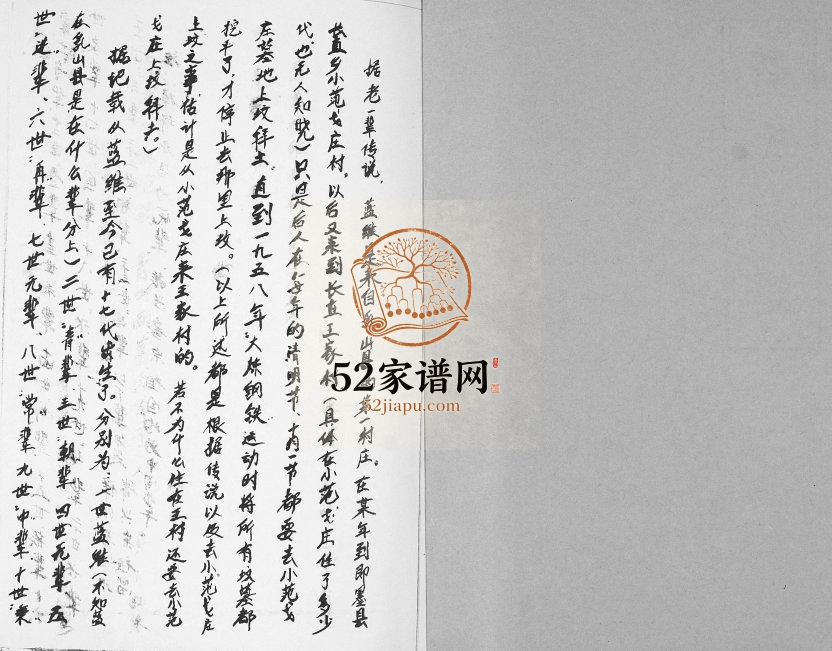 据老一辈传说，蓝继是来自乳山县的第一村庄。在某年到即墨县
长直乡小范戈庄村。以后又来到长直王家村（具体在小范戈庄住了多少
代也无人知晓）只是后人在每年的清明节、十月一节都要去小范戈
庄墓地上坟拜土，直到一九五八年"大炼钢铁"运动时将所有坟墓都
挖平了，才停止去那里上坟。（以上所述都是根据传说以及去小范戈庄
上坟之事，估计是从小范戈庄来王家村的。若不为什么住在王村还要去小范
戈庄上坟拜去。）
据记载从蓝继至今已有十七代出生了。分别为：一世蓝继（不知蓝
在乳山县是在什么辈分上）二世"青"辈 三世"朝"辈 四世无辈、五
世"进"辈、六世"再"辈、七世元辈、八世"常"辈 九世"中"辈、十世"秉
52家谱网
52jiapu.com